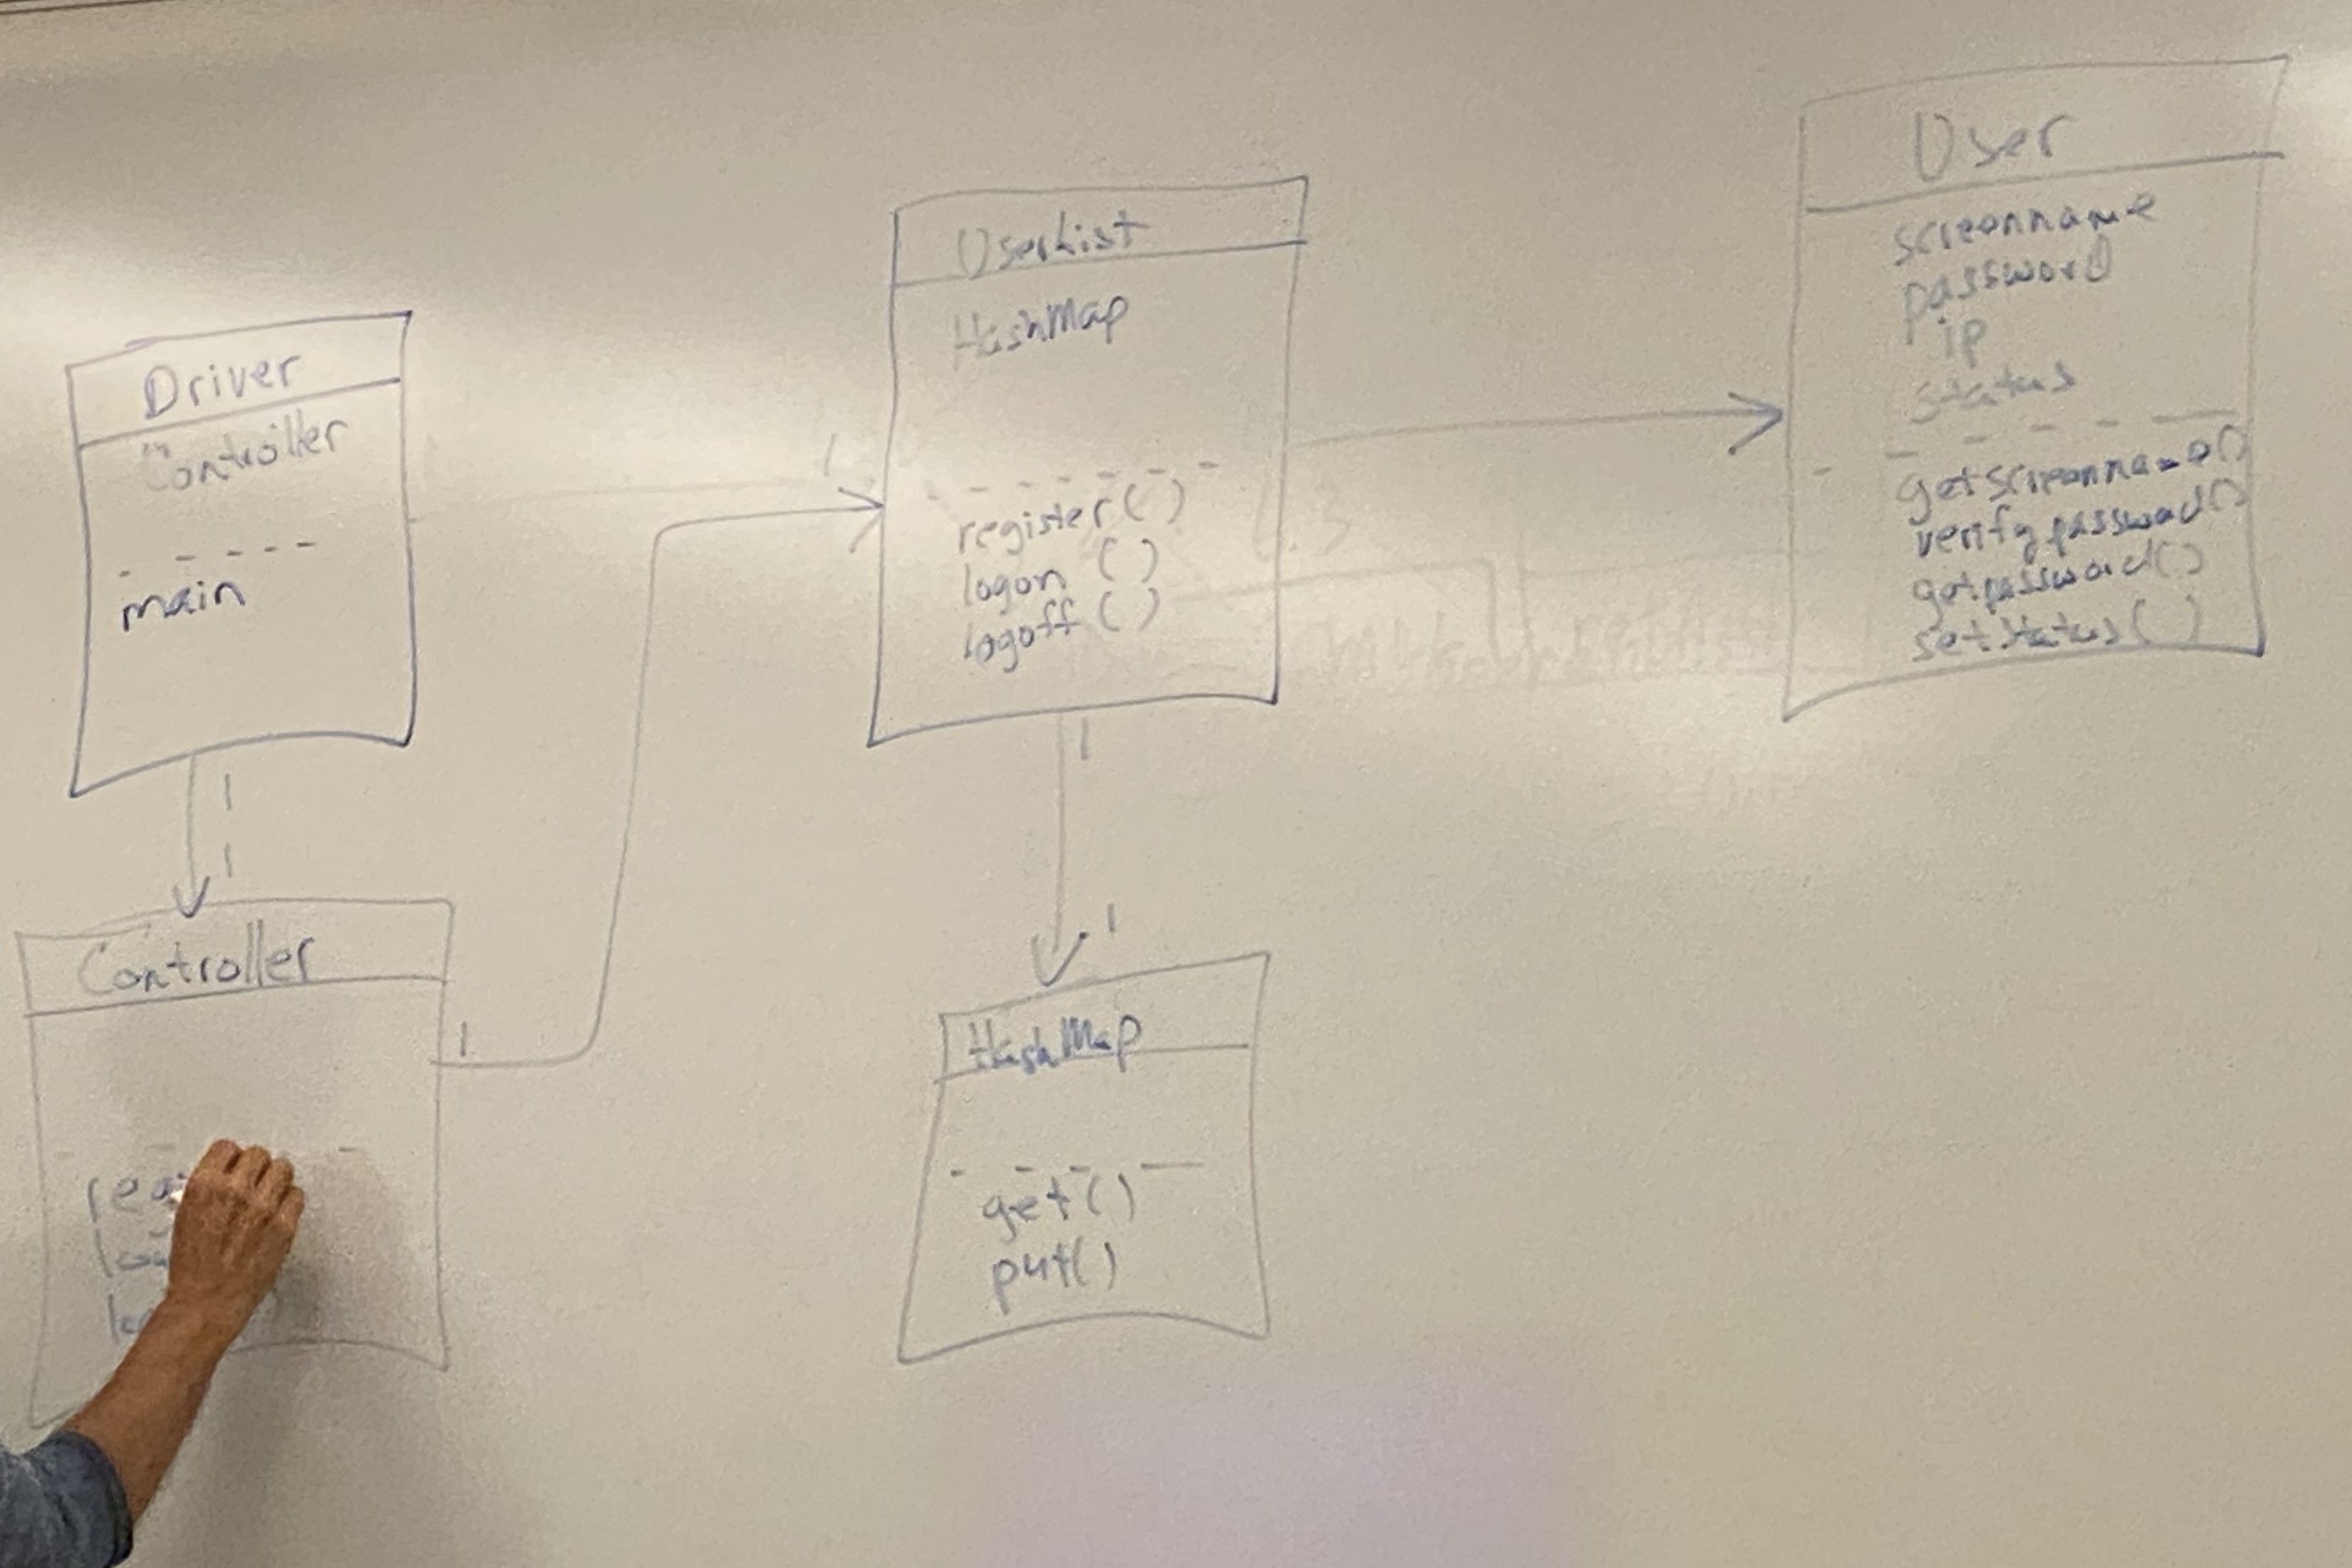 Driver
Controller
main
1
1
Controller
1
UserList
HashMap
register()
logon ()
logoff ()
1
1
1
HashMap
get()
put()
User
screenname
password
ip
status
getscreenname()
verifypassword()
getpassword()
setstatus()